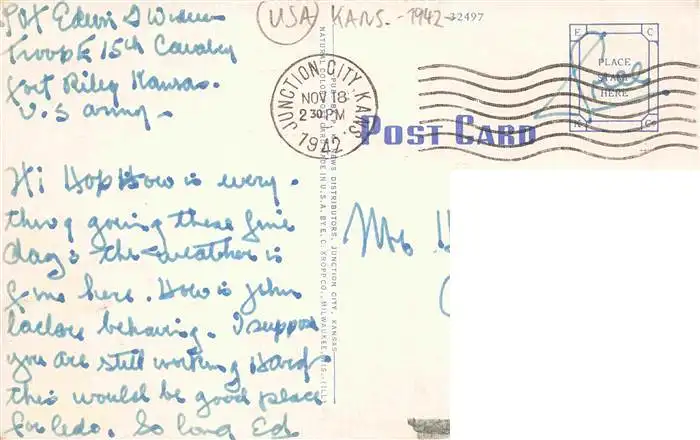 Pvt Edwin D
Troop E 15th Cavalry
Fort Riley Kansas.
U.S army.
USA KANS. - 1942 -
32497
JUNCTION CITY, KANS.
NOV 18
2 30 PM
1942
E C
PLACE
STAMP
HERE
Free
K Co
POST CARD
Hi Hop How is every-
thing going these fine
days the weather is
fine here. How is John
behaving. I suppose
you are still working Hard
this would be good place
for Leo. So long Ed
Mr. H
NATURAL COLOR
NEWS DISTRIBUTORS, JUNCTION CITY, KANSAS
MADE IN U.S.A. BY E. C. KROPP CO., MILWAUKEE, WIS. (ILL.)